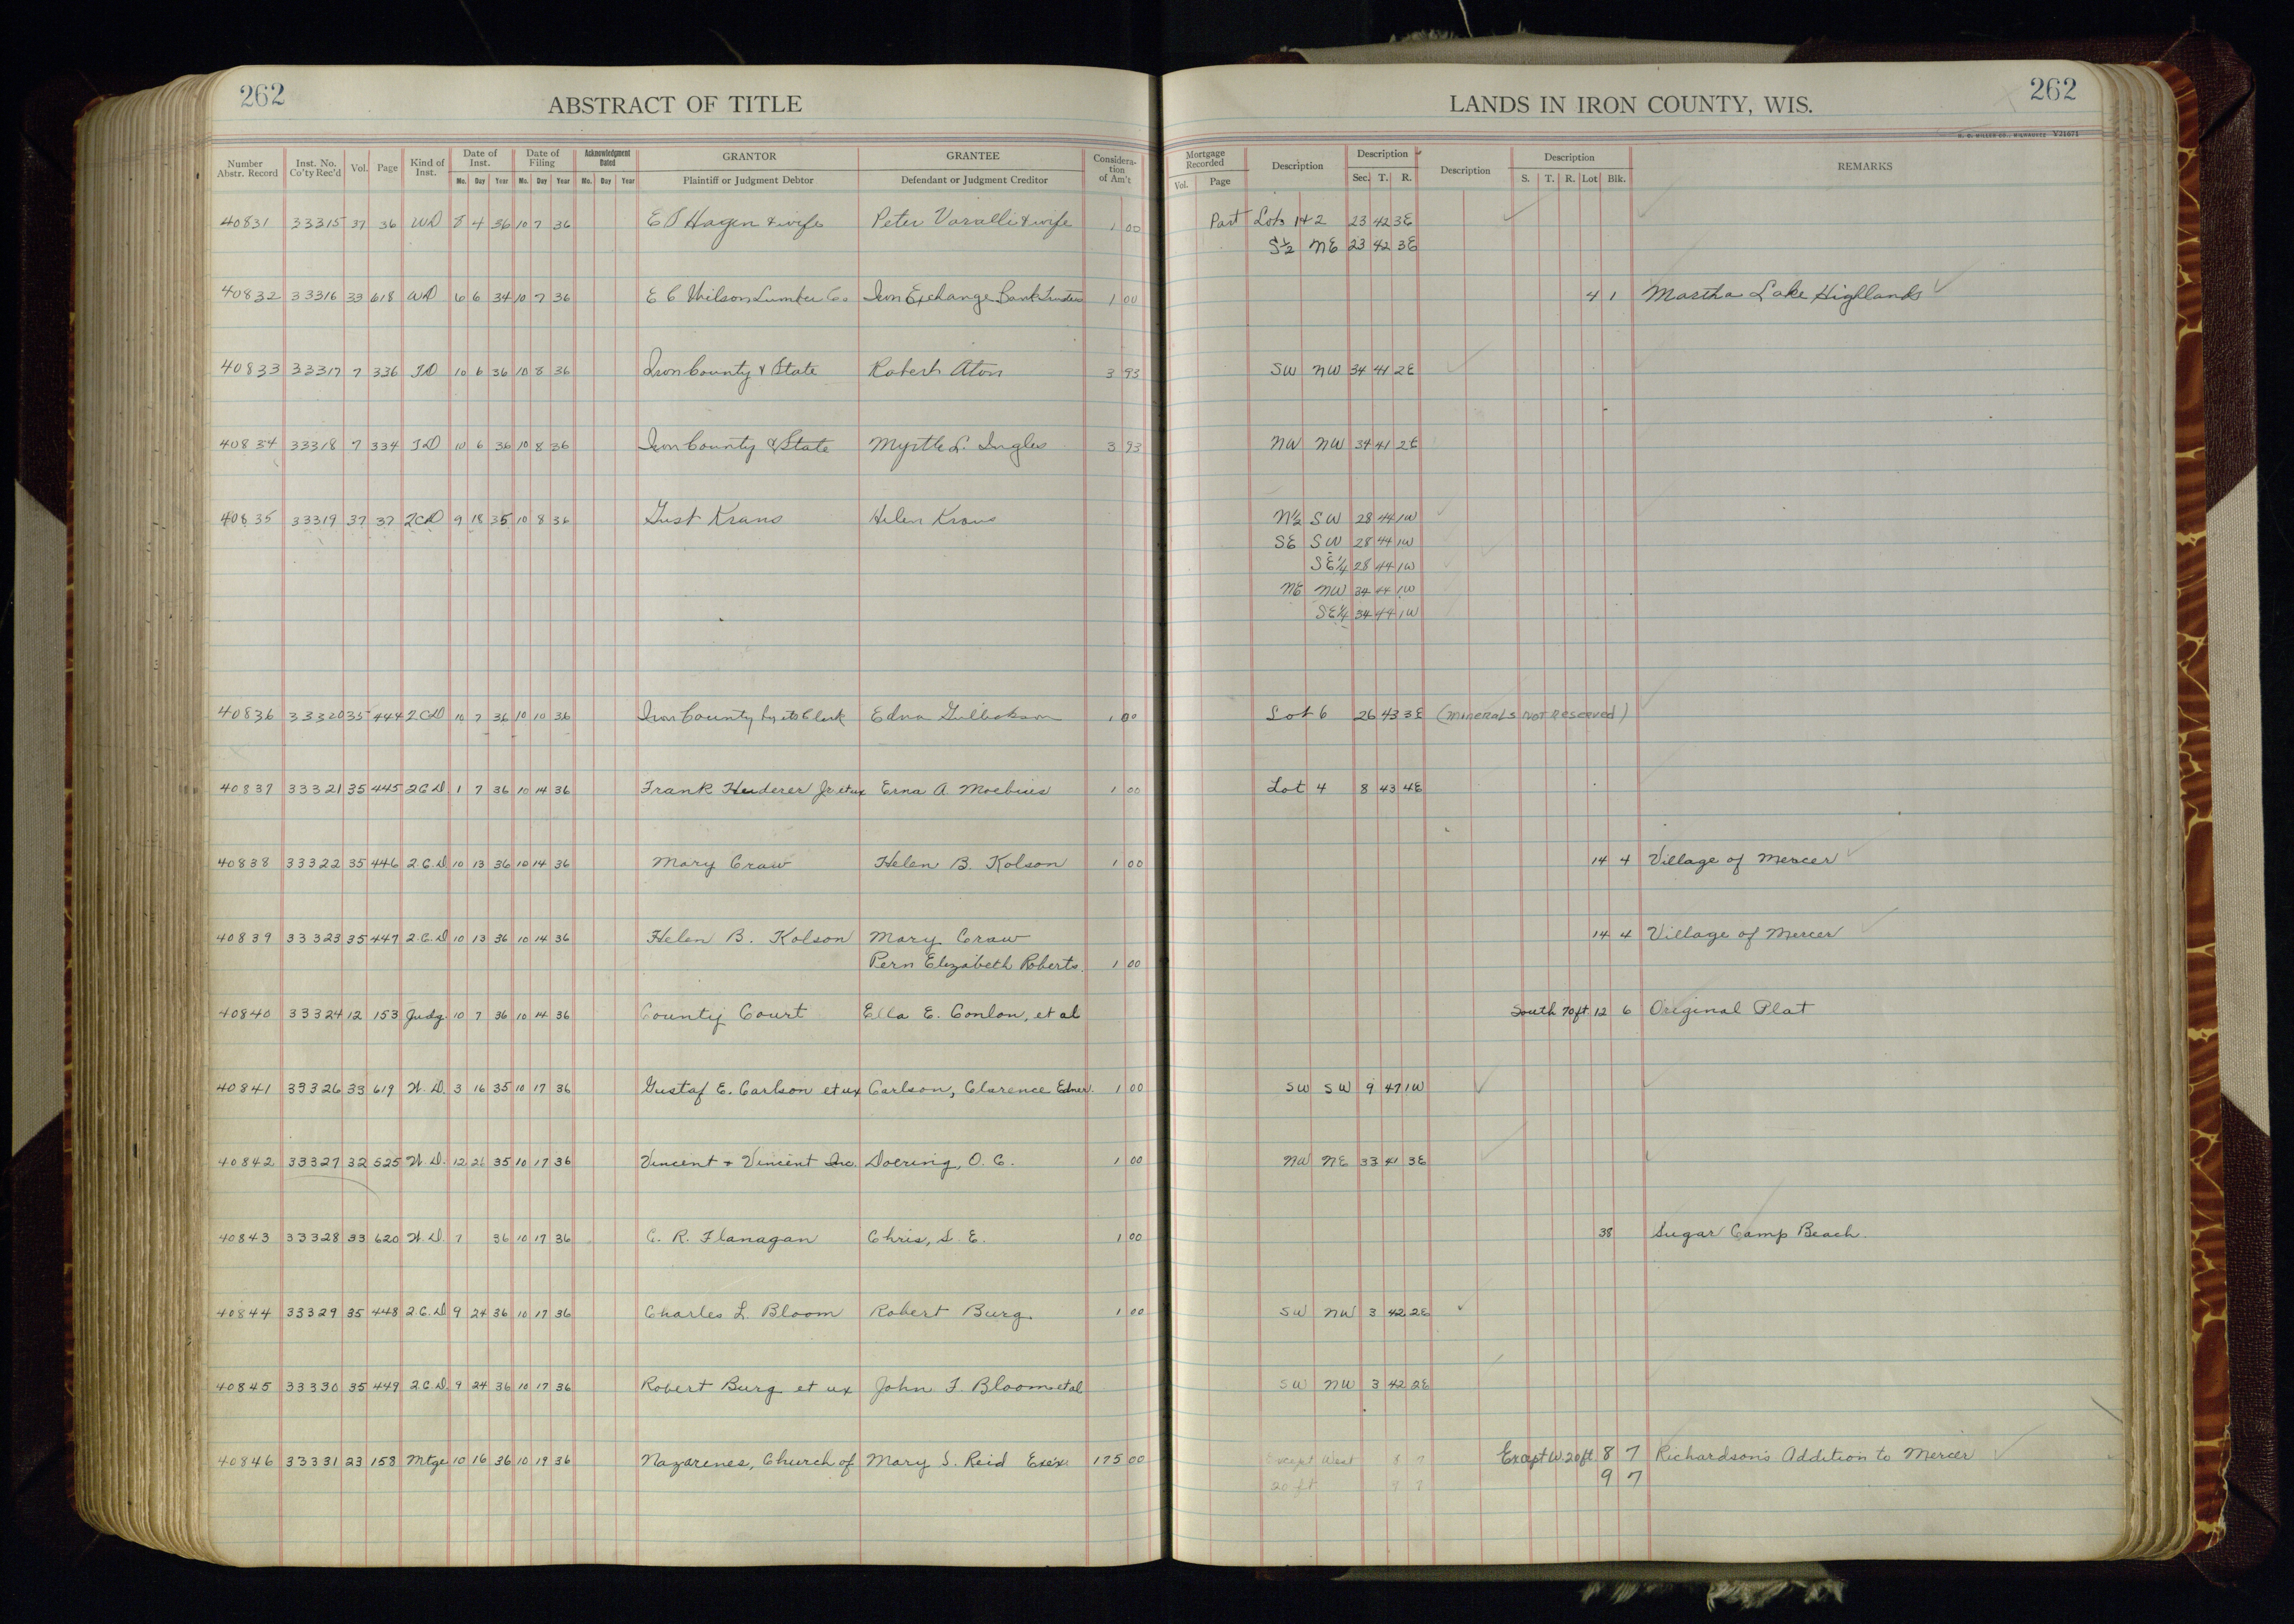 262
ABSTRACT OF TITLE
LANDS IN IRON COUNTY, WIS.
262
Number Abstr. Record | Inst. No. Co'ty Rec'd | Vol. | Page | Kind of Inst. | Date of Inst. Mo. Day Year | Date of Filing Mo. Day Year | Acknowledgment Dated Mo. Day Year | GRANTOR Plaintiff or Judgment Debtor | GRANTEE Defendant or Judgment Creditor | Considera-tion of Am't | Mortgage Recorded Vol. Page | Description | Description Sec. T. R. | Description | Description S. T. R. Lot Blk. | REMARKS
40831 33315 37 36 WD 8 4 36 10 7 36 Hagen & wife Peter Varalli & wife 1 00 Part Lots 1+2 23 42 3E
S½ NE 23 42 3E
40832 33316 33 618 WD 6 6 34 10 7 36 E C Wilson Lumber Co Iron Exchange Bank Trustee 1 00 4 1 Martha Lake Highlands
40833 33317 7 336 TD 10 6 36 10 8 36 Iron County & State Robert Aton 3 93 SW NW 34 41 2E
40834 33318 7 334 TD 10 6 36 10 8 36 Iron County & State Myrtle L. Ingles 3 93 NW NW 34 41 2E
40835 33319 37 37 2CD 9 18 35 10 8 36 Gust Krans Helen Krans N½ SW 28 44 1W
SE SW 28 44 1W
SE¼ 28 44 1W
NE NW 34 44 1W
SE¼ 34 44 1W
40836 33320 35 444 2CD 10 7 36 10 10 36 Iron County by its Clerk Edna 1 00 Lot 6 26 43 3E (Minerals not Reserved)
40837 33321 35 445 2CD 1 7 36 10 14 36 Frank Huderer Jr et ux Erna A Moebius 1 00 Lot 4 8 43 4E
40838 33322 35 446 2.C.D 10 13 36 10 14 36 Mary Craw Helen B. Kolson 1 00 14 4 Village of Mercer
40839 33323 35 447 2.C.D 10 13 36 10 14 36 Helen B. Kolson Mary Craw 14 4 Village of Mercer
Pern Elizabeth Roberts. 1 00
40840 33324 12 153 Judg. 10 7 36 10 14 36 County Court Ella E. Conlon, et al South 70 ft 12 6 Original Plat
40841 33326 33 619 W.D. 3 16 35 10 17 36 Gustaf E. Carlson et ux Carlson, Clarence Edner. 1 00 SW SW 9 47 1W
40842 33327 32 525 W.D. 12 26 35 10 17 36 Vincent + Vincent Inc. Doering, O. C. 1 00 NW NE 33 41 3E
40843 33328 33 620 W.D. 7 36 10 17 36 C. R. Flanagan Chris, S. E. 1 00 38 Sugar Camp Beach.
40844 33329 35 448 2.C.D 9 24 36 10 17 36 Charles L. Bloom Robert Burg. 1 00 SW NW 3 42 2E
40845 33330 35 449 2.C.D. 9 24 36 10 17 36 Robert Burg et ux John F. Bloom et al SW NW 3 42 2E
40846 33331 23 158 Mtge 10 16 36 10 19 36 Nazarenes, Church of Mary S. Reid Exex. 175 00 Except West 8 7 Except W 20 ft 8 7 Richardson's Addition to Mercer
20 ft 9 7 9 7